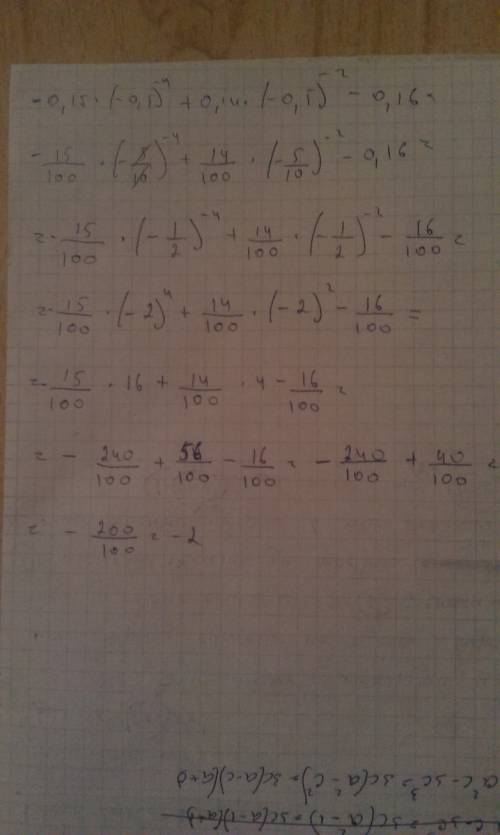 -0,15 · (-0,5)^-4 + 0,14 · (-0,5)^-2 - 0,16 =
- 15/100 · (-5/10)^-4 + 14/100 · (-5/10)^-2 - 0,16 =
= - 15/100 · (-1/2)^-4 + 14/100 · (-1/2)^-2 - 16/100 =
= - 15/100 · (-2)^4 + 14/100 · (-2)^2 - 16/100 =
= - 15/100 · 16 + 14/100 · 4 - 16/100 =
= - 240/100 + 56/100 - 16/100 = - 240/100 + 40/100 =
= - 200/100 = -2